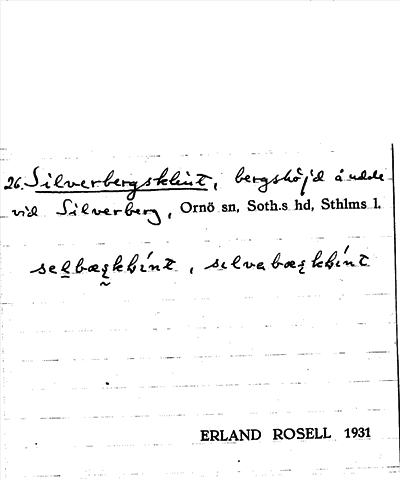 26. Silverbergsklint, bergshöjd å udde
vid Silverberg, Ornö sn, Soth.s hd, Sthlms l.
ERLAND ROSELL 1931